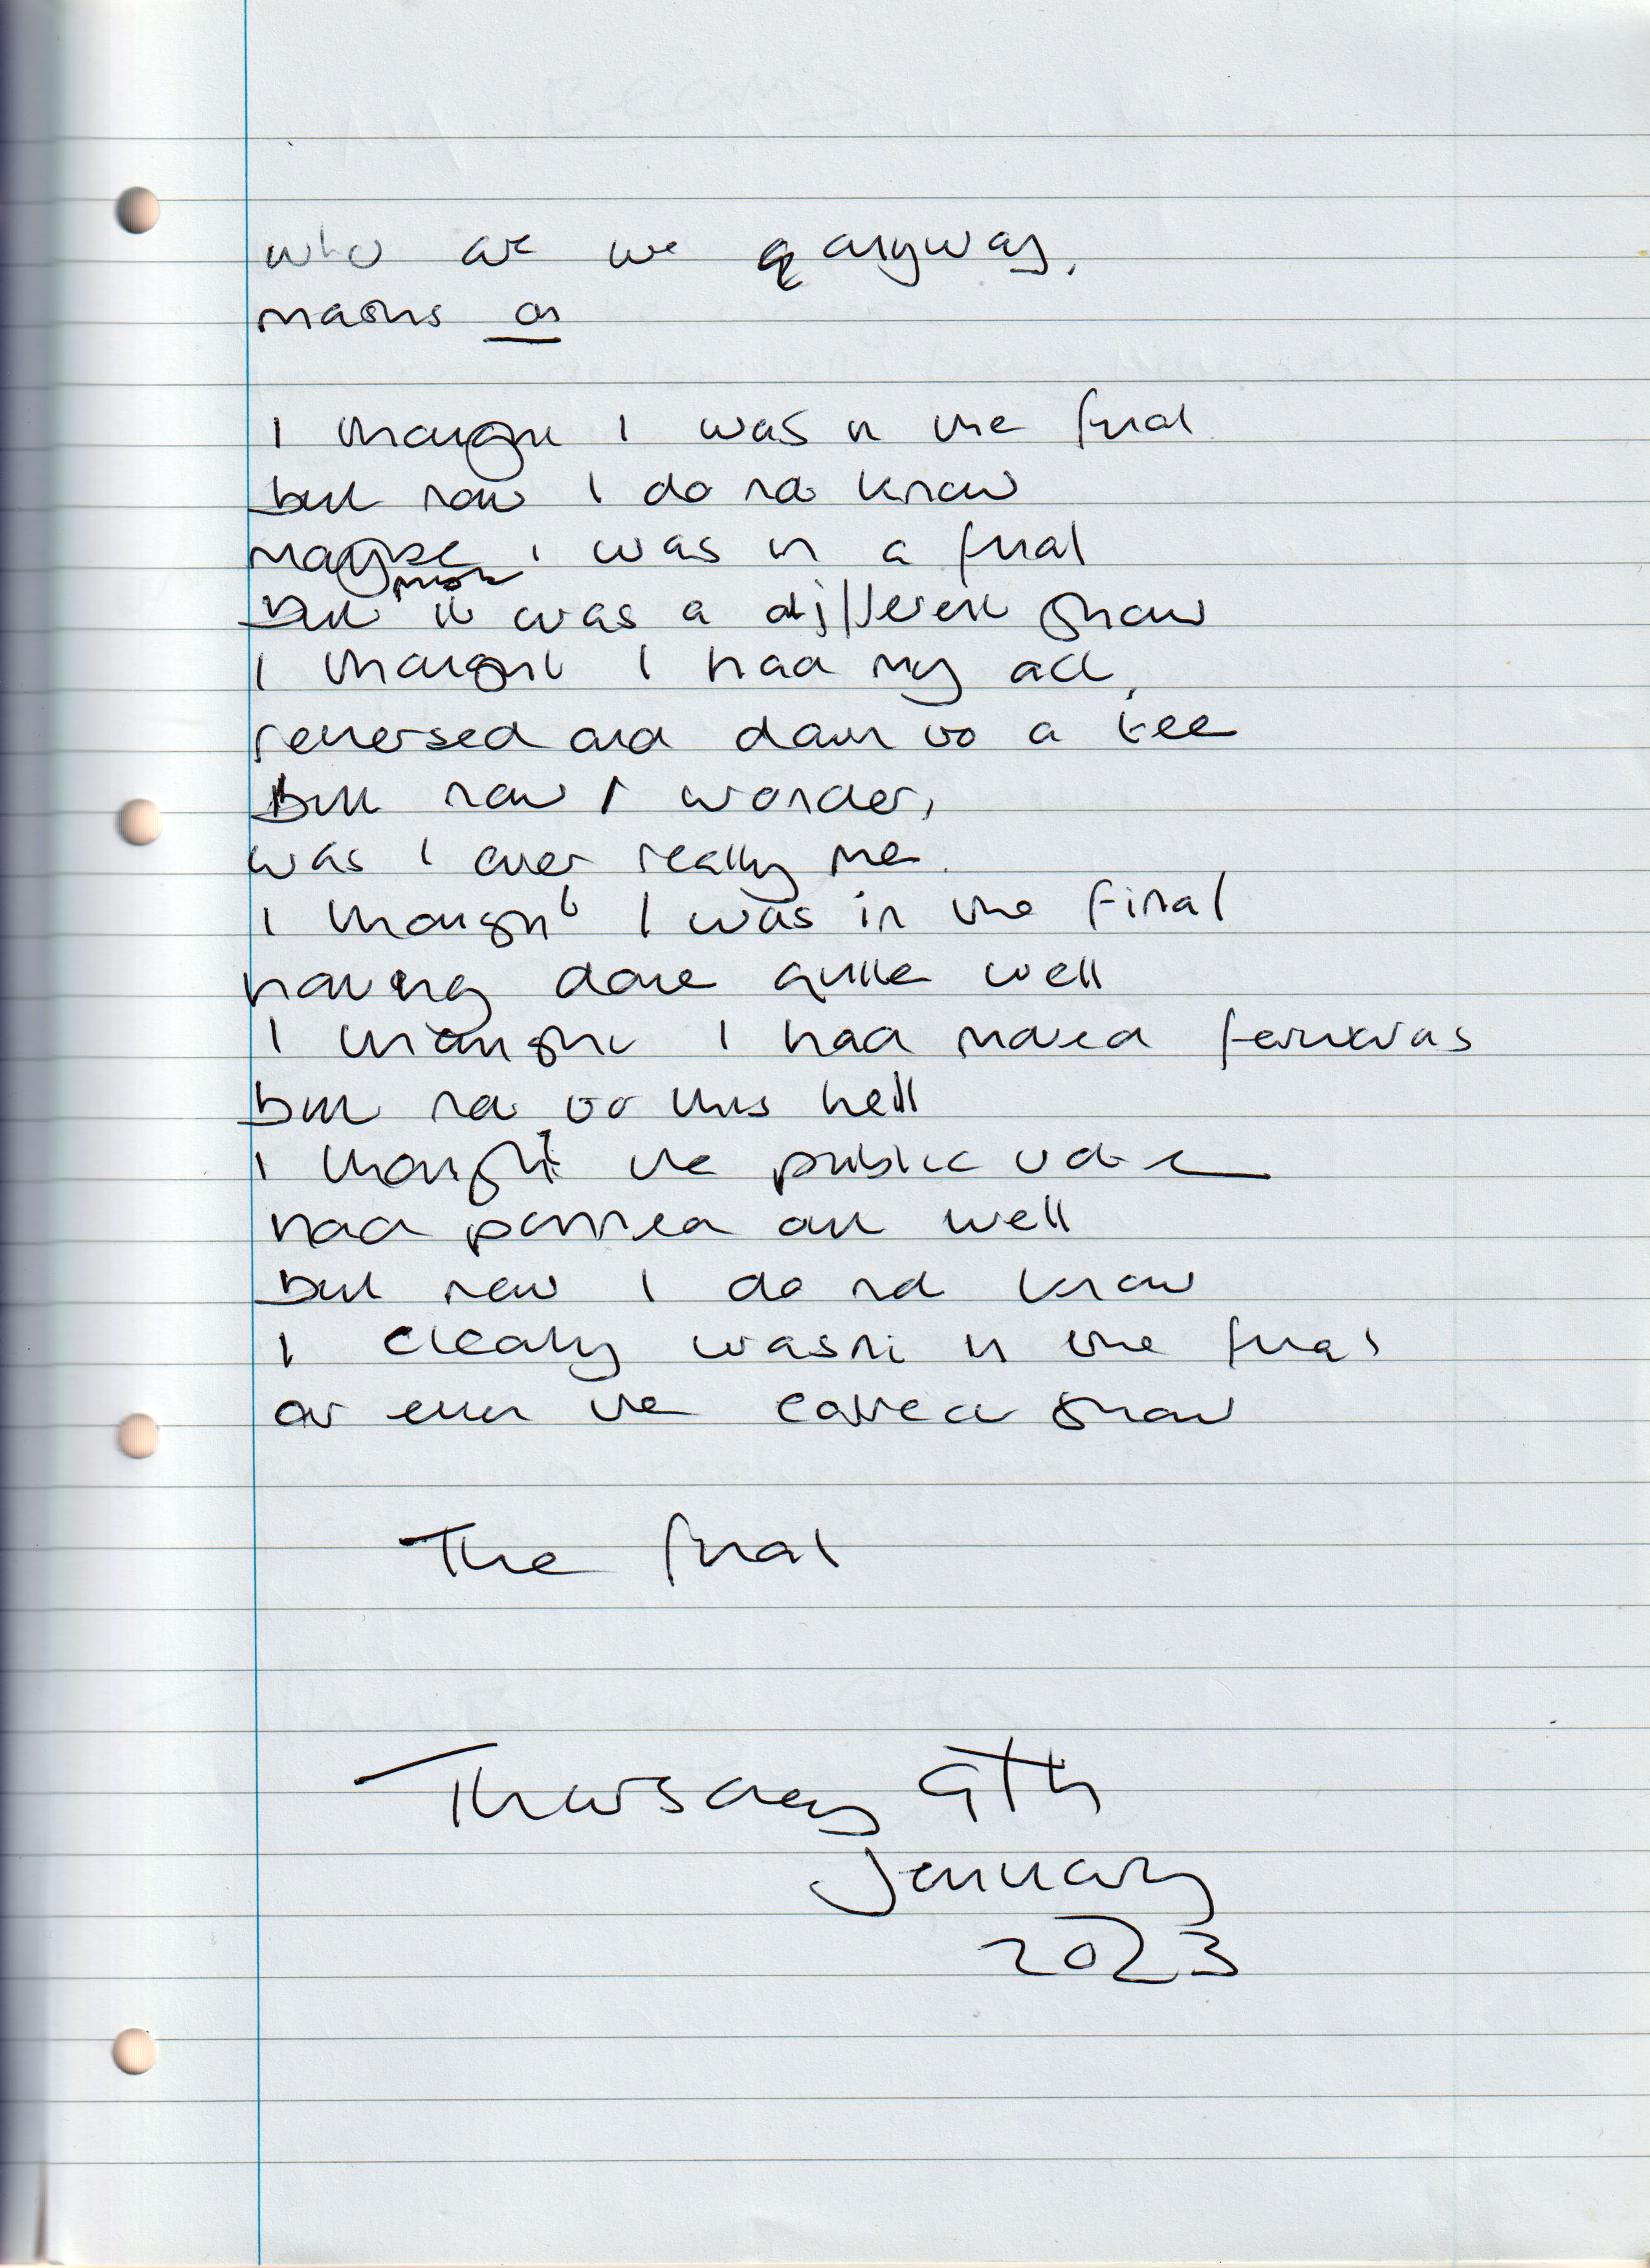 who are we anyway,
masks on
I thought I was in the final
but now I do not know
maybe I was in a final
but it was a different show
I thought I had my act,
rehersed and down to a tee
But now I wonder,
was I ever really me.
I thought I was in the final
having done quite well
I thought I had moved forwards
but not to this hell
I thought the public vote
had panned out well
but now I do not know
I clearly wasn't in the final
or even the correct show
The final
Thursday 9th
January
2023